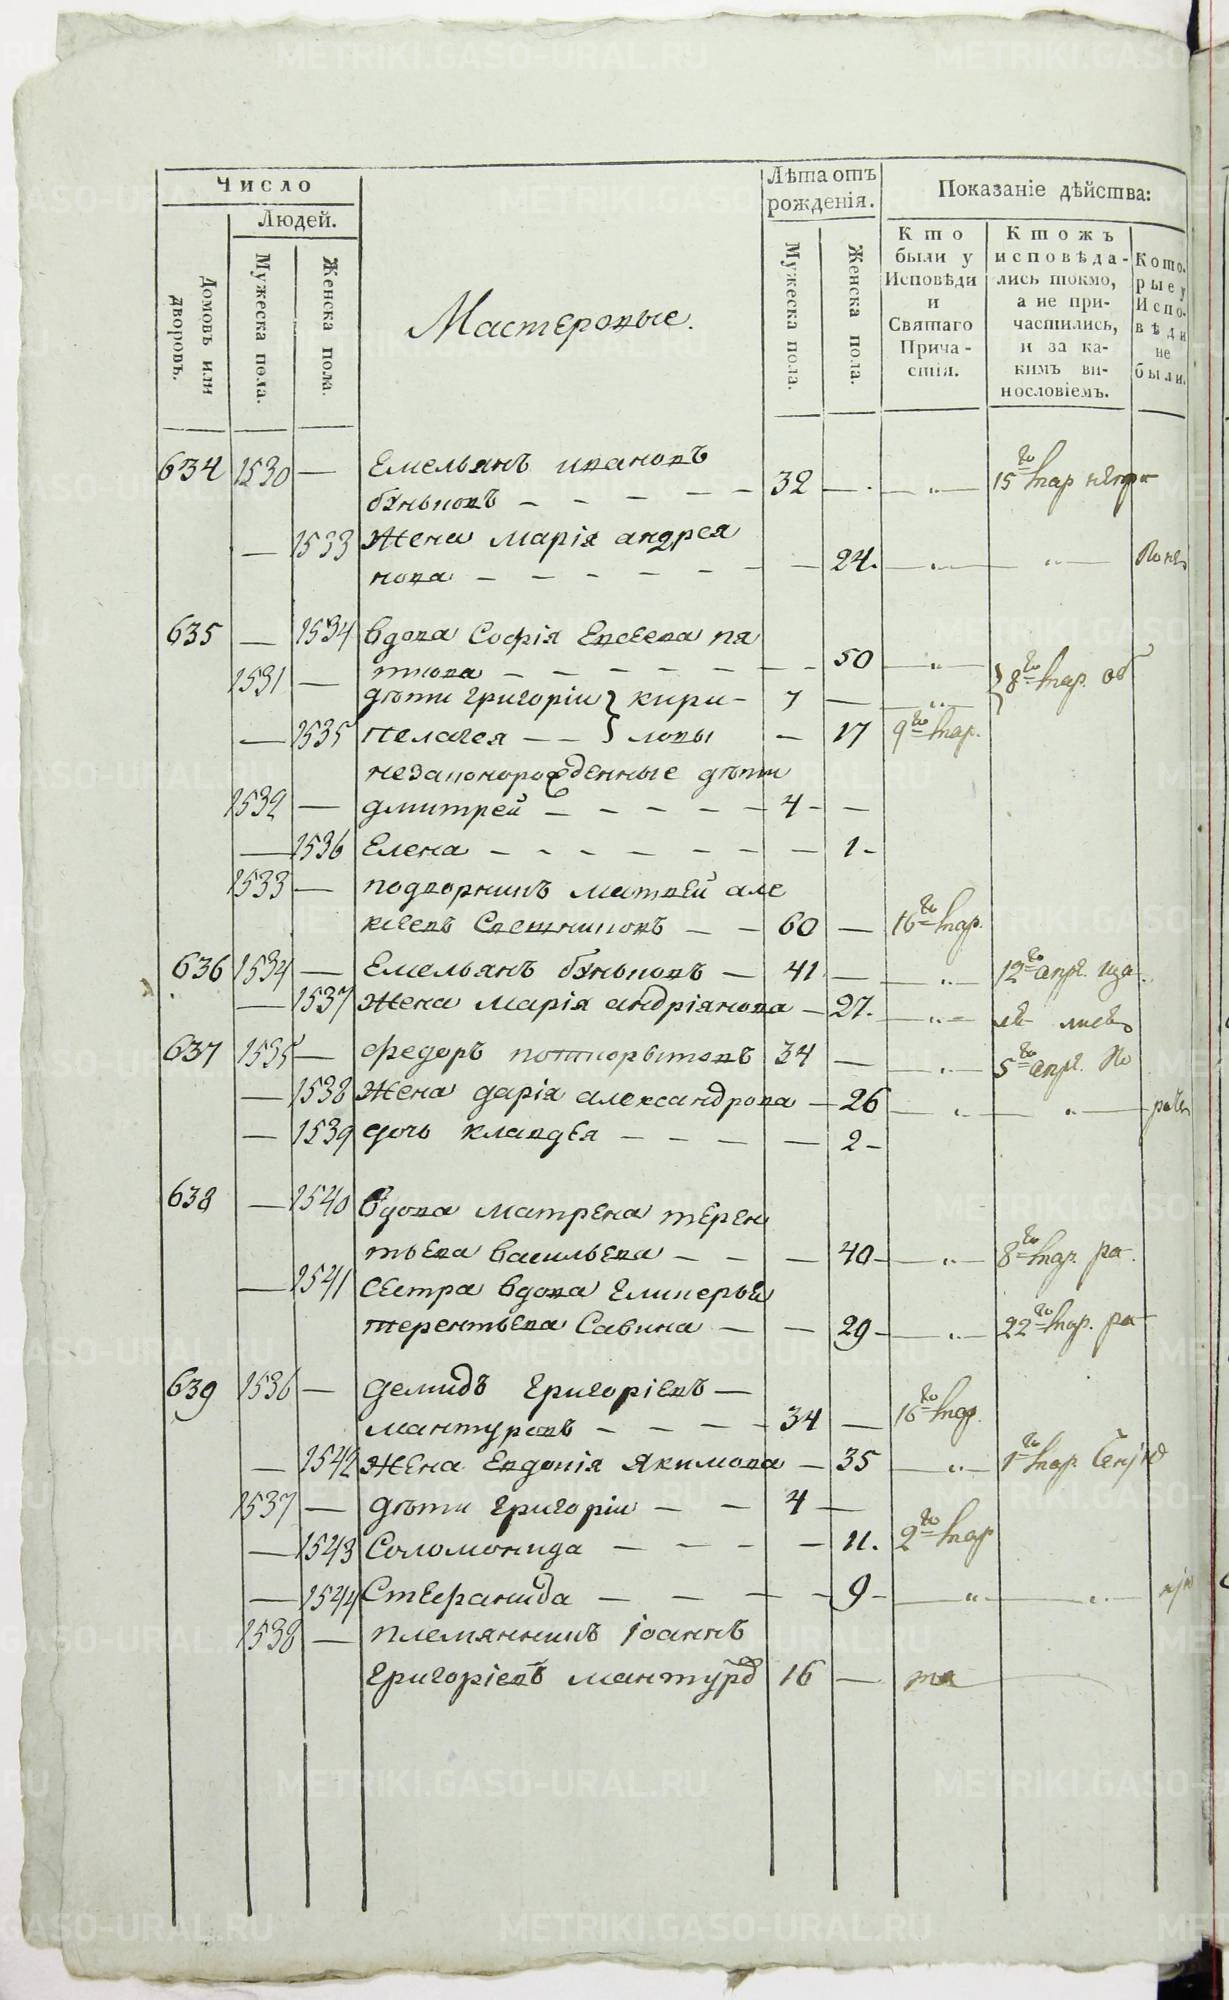 Число
Людей.
Домовъ или дворовъ.
Мужеска пола.
Женска пола.
Мастеровые.
Лѣта отъ рожденія.
Мужеска пола.
Женска пола.
Показаніе дѣйства:
Кто были у Исповѣди и Святаго Причастія.
Ктожъ исповѣдались токмо, а не причастились, и за какимъ винословіемъ.
Которые у Исповѣди не были.
634 1530 — Емельянъ ивановъ
быковъ — — — — — 32 — 15
— 1533 Жена марія андрея
нова — — — — — — 24.
635 — 1534 вдова Софія Евсеева пя
това — — — — — 50
1531 — дѣти григоріи } кири- 7 — 8
— 1535 пелагея — — } ловы — 17 9 мар.
незаконорожденные дѣти
1532 — дмитрей — — — — — 4 —
— 1536 Елена — — — — — — 1
1533 — подворникъ матвей але
ксеевъ — — 60 — 16 мар.
636 1534 — Емельянъ быковъ — 41 — 12 апр.
— 1537 Жена марія андріянова — 27.
637 1535 — федоръ 34 — 5 апр.
— 1538 Жена дарія александрова — 26
— 1539 дочь клавдея — — — — 2
638 — 1540 вдова матрена терен
тьева васильева — — — 40 8 мар.
— 1541 сестра вдова
терентьева Савина — — 29 22 мар.
639 1536 — демидъ григоріевъ —
мантуровъ — — — — 34 — 16 мар.
— 1542 Жена Евдокія Якимова — 35 1 мар.
1537 — дѣти григоріи — — 4 —
— 1543 Соломонида — — — — 11. 2 мар
— 1544 Стефанида — — — — 9
1538 — племянникъ іоаннъ
григоріевъ мантуров 16 —
METRIKI.GASO-URAL.RU